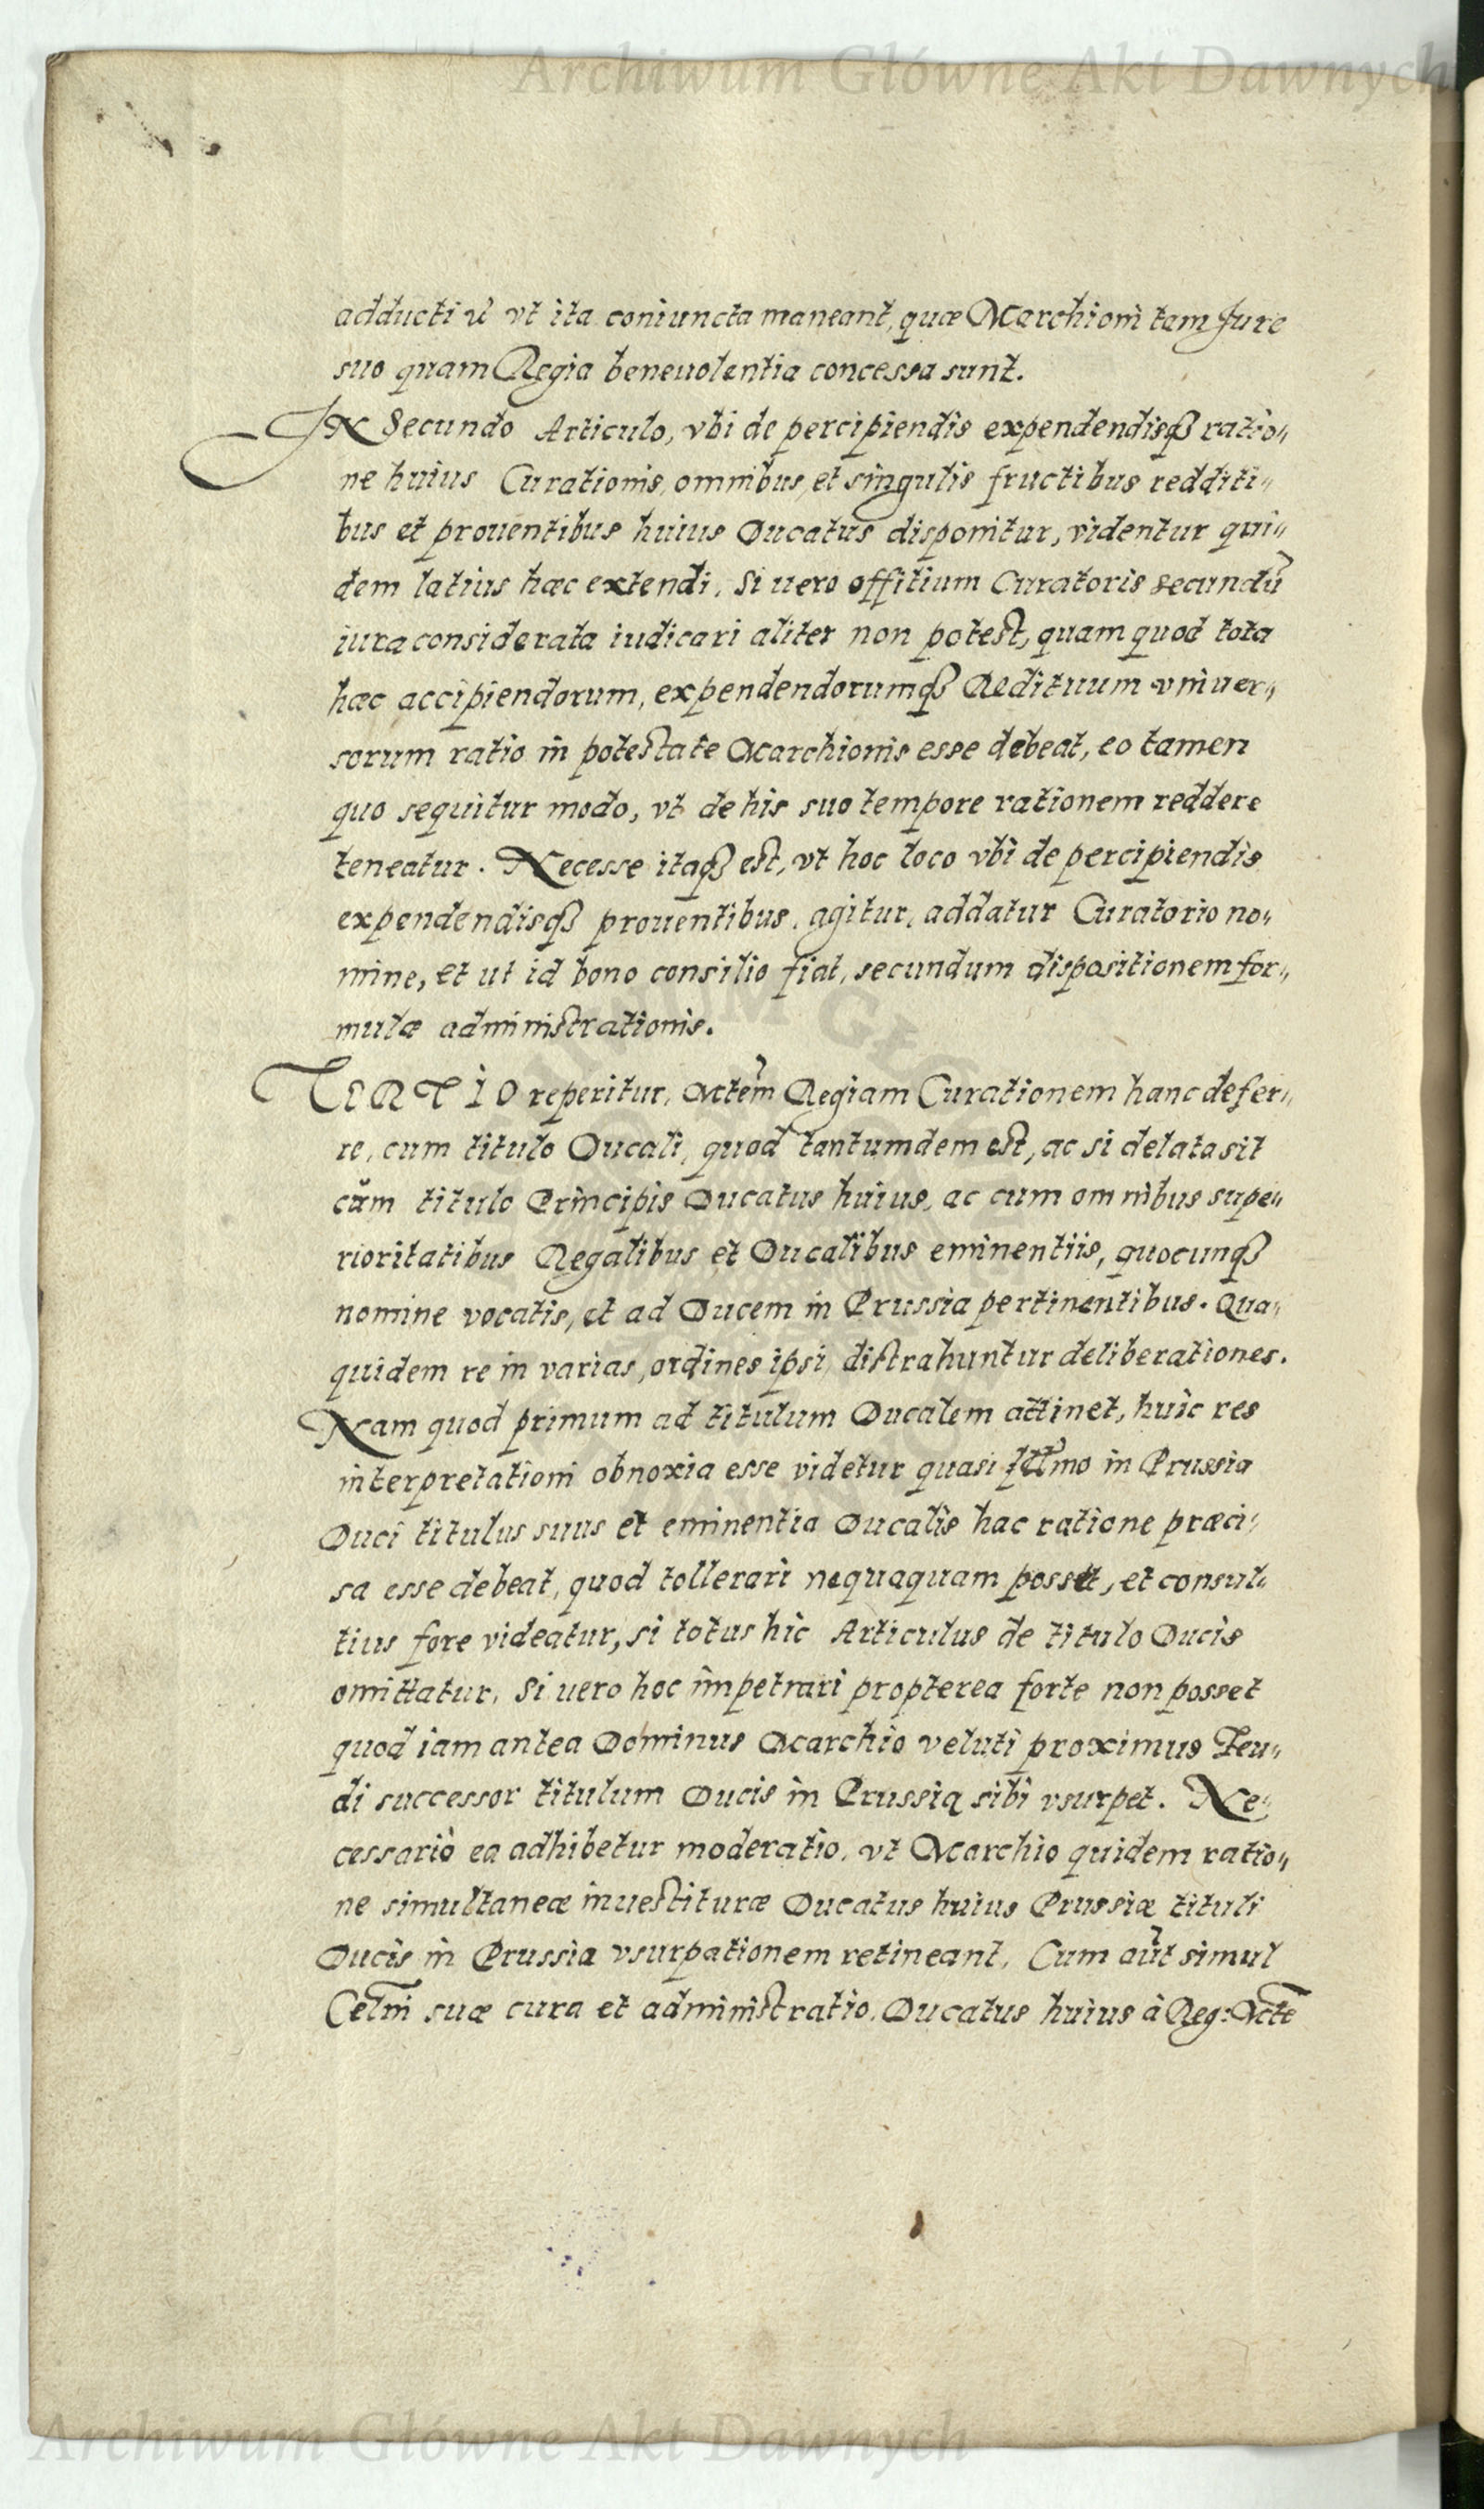 Archiwum Główne Akt Dawnych
adducti ut vt ita coniuncta maneant, quæ Marchioni tam Jure
suo quam Regia beneuolentia concessa sunt.
IN Secundo Articulo, vbi de percipiendis expendendisqꝫ ratio„
ne huius Curationis, omnibus, et singulis fructibus redditi„
bus et prouentibus huius Ducatus disponitur, videntur qui„
dem latius hæc extendi. Si uero offitium Curatoris secundũ
iura considerata iudicari aliter non potest, quam quod tota
hæc accipiendorum, expendendorumqꝫ Redituum vniuer„
sorum ratio in potestate Marchionis esse debeat, eo tamen
quo sequitur modo, vt de his suo tempore rationem reddere
teneatur. Necesse itaqꝫ est, vt hoc loco vbi de percipiendis
expendendisqꝫ prouentibus, agitur, addatur Curatorio no„
mine, et ut id bono consilio fiat, secundum dispositionem for„
mulæ administrationis.
TERTIO reperitur, Mtẽm Regiam Curationem hanc defer„
re, cum titulo Ducali, quod tantumdem est, ac si delata sit
cùm titulo Principis Ducatus huius, ac cum omnibus supe„
rioritatibus Regalibus et Ducalibus eminentiis, quocunqꝫ
nomine vocatis, et ad Ducem in Prussia pertinentibus. Qua„
quidem re in varias, ordines ipsi distrahuntur deliberationes.
Nam quod primum ad titulum Ducalem attinet, huic res
interpretationi obnoxia esse videtur quasi Illmo in Prussia
Duci titulus suus et eminentia Ducalis hac ratione præci„
sa esse debeat, quod tollerari nequaquam posset, et consul„
tius fore videatur, si totus hic Articulus de titulo Ducis
omittatur. Si uero hoc impetrari propterea forte non posset
quod iam antea Dominus Marchio veluti proximus Feu„
di successor titulum Ducis in Prussia sibi vsurpet. Ne„
cessariò ea adhibetur moderatio, vt Marchio quidem ratio„
ne simultaneæ inuestituræ Ducatus huius Prussiæ tituli
Ducis in Prussia vsurpationem retineant. Cum aũt simul
Celni suæ cura et administratio, Ducatus huius à Reg: Mcte
Archiwum Główne Akt Dawnych